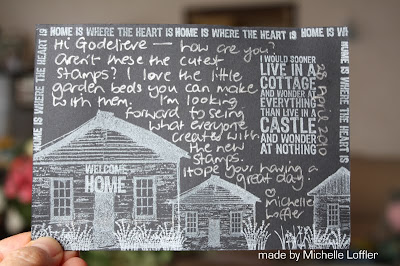 HOME IS WHERE THE HEART IS HOME IS WHERE THE HEART IS HOME IS WHERE
HOME IS WHERE THE HEART IS
HOME IS WHERE THE HEART IS
Hi Godelieve — how are you?
Aren't these the cutest
stamps? I love the little
garden beds you can make
with them. I'm looking
forward to seing
what everyone
creates with
the new
stamps.
Hope your having a
great day
Michelle
Loffler
I WOULD SOONER
LIVE IN A
COTTAGE
AND WONDER AT
EVERYTHING
THAN LIVE IN A
CASTLE
AND WONDER
AT NOTHING
WELCOME
HOME
made by Michelle Loffler